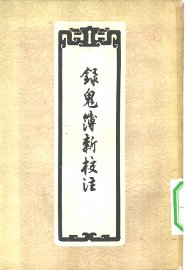 錄鬼簿新校注